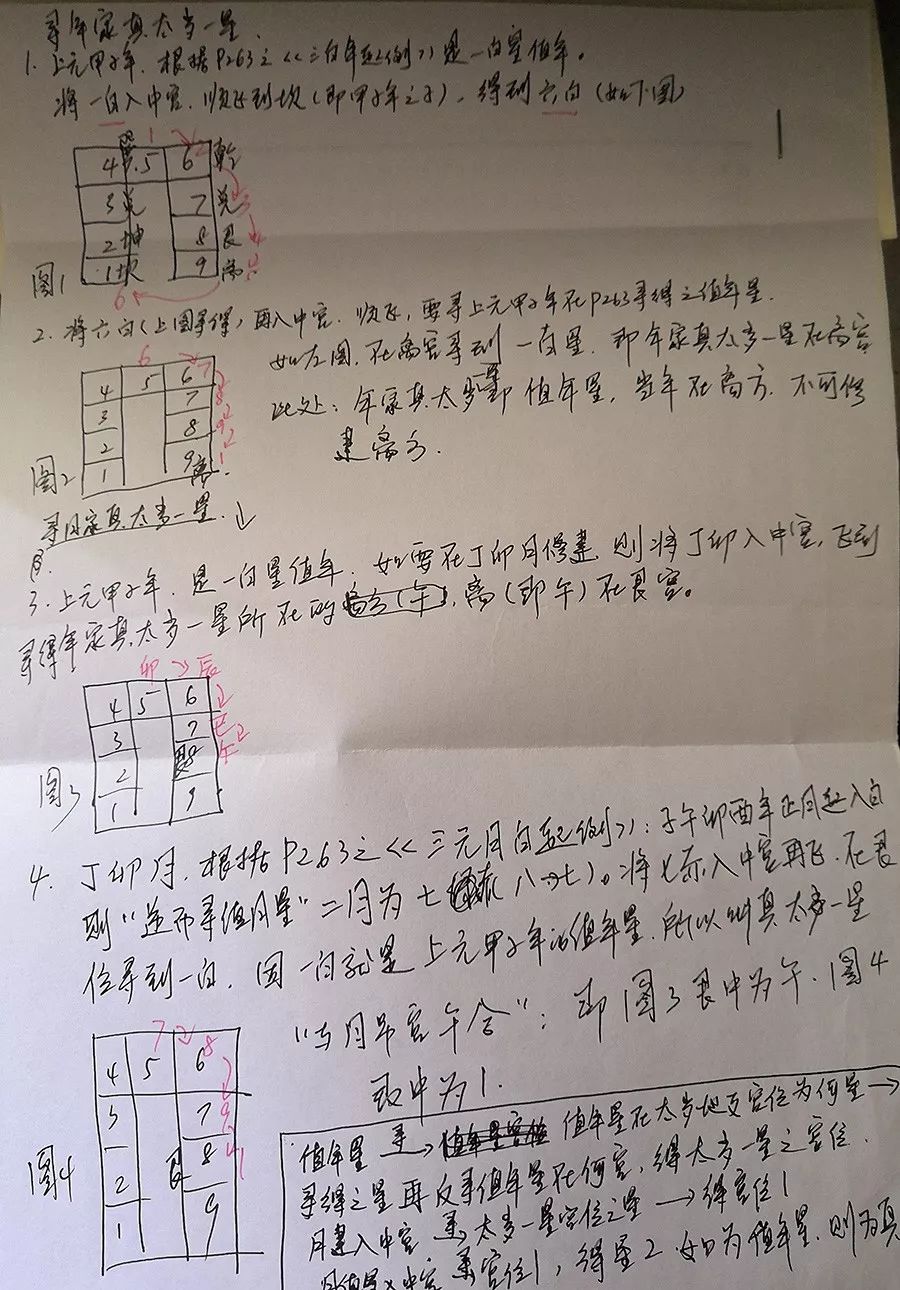 寻年家真太岁一星.
1. 上元甲子年, 根据P263之《三白年起例》是一白星值年。
将一白入中宫, 顺飞到坎(即甲子年之子), 得到六白(如下图)
1
4 5 6 乾
3 7 兑 3
2 坤 8 艮 4
1 坎 9 离
6
图1
2. 将六白(上图寻得)再入中宫, 顺飞, 要寻上元甲子年在P263寻得之值年星.
如左图, 在离宫寻到一白星, 即年家真太岁一星在离宫
此处: 年家真太岁一星即值年星, 当年在离方, 不可修
建离方.
6 7
4 5 6
3 7 8
2 8 9
1 9 离 1
图2
寻月家真太岁一星. ↓
3. 上元甲子年, 是一白星值年, 如要在丁卯月修建, 则将丁卯入中宫, 飞到
寻得年家真太岁一星所在的离方(午), 离(即午)在艮宫。
卯 → 辰
4 5 6
3 7 巳
2 艮 8 午
1 9
图3
4. 丁卯月, 根据P263之《三元月白起例》: 子午卯酉年正月起八白
则"逆而寻值月星"二月为七赤(八→七)。将七赤入中宫再飞, 在艮
位寻到一白, 因一白就是上元甲子年的值年星, 所以叫真太岁一星
"与月吊宫午合": 即图3艮中为午, 图4
艮中为1.
7 8
4 5 6
3 7 9
2 艮 8 1
1 9
图4
值年星 寻→ 值年星在太岁地支宫位为何星→
寻得之星再反寻值年星在何宫, 得太岁一星之宫位.
月建入中宫, 寻太岁一星宫位之星 → 得宫位1
月值星入中宫, 寻宫位1, 得星2. 如为值年星, 则为真